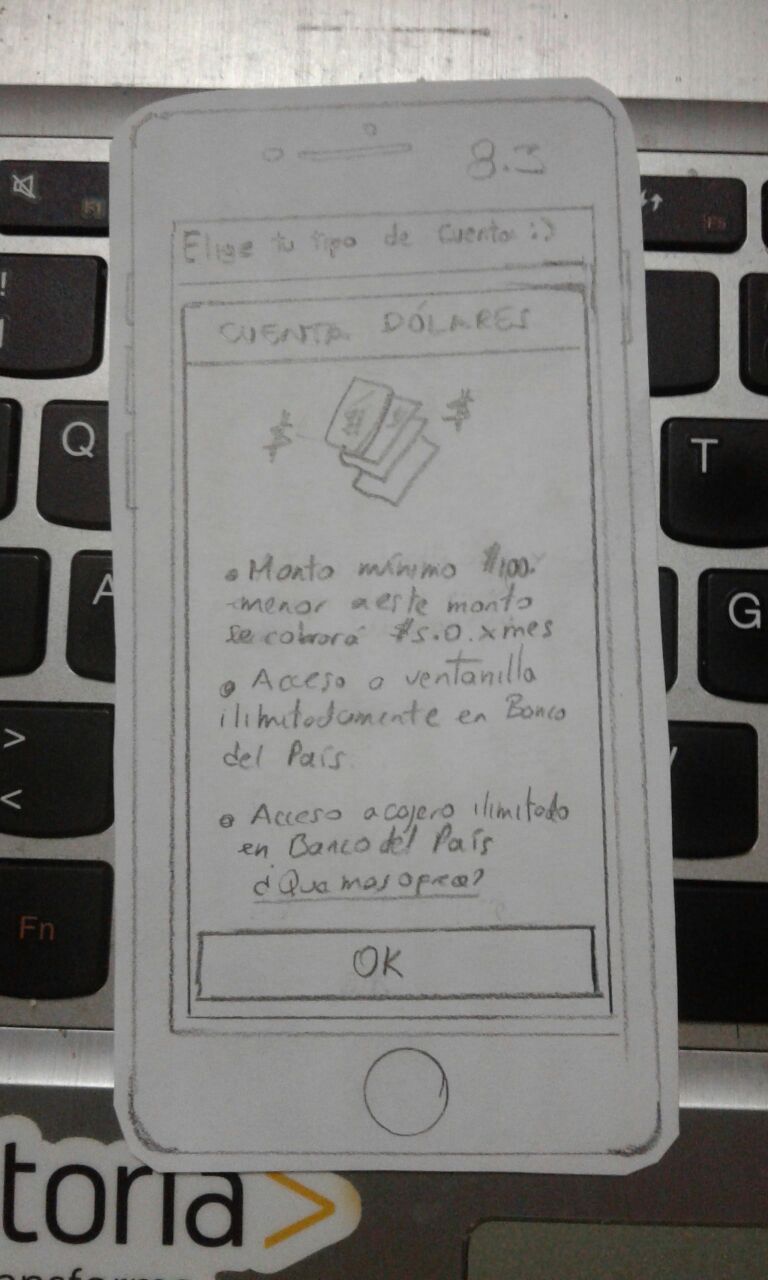 8.3
Elige tu tipo de cuenta :)
CUENTA DÓLARES
$ $
• Monto mínimo $100.
menor a este monto
se cobrará $5.0.x mes
• Acceso a ventanilla
ilimitadamente en Banco
del País.
• Acceso a cajero ilimitado
en Banco del País
¿Que mas oprece?
OK
Q
T
A
G
!
>
<
Fn
toria>